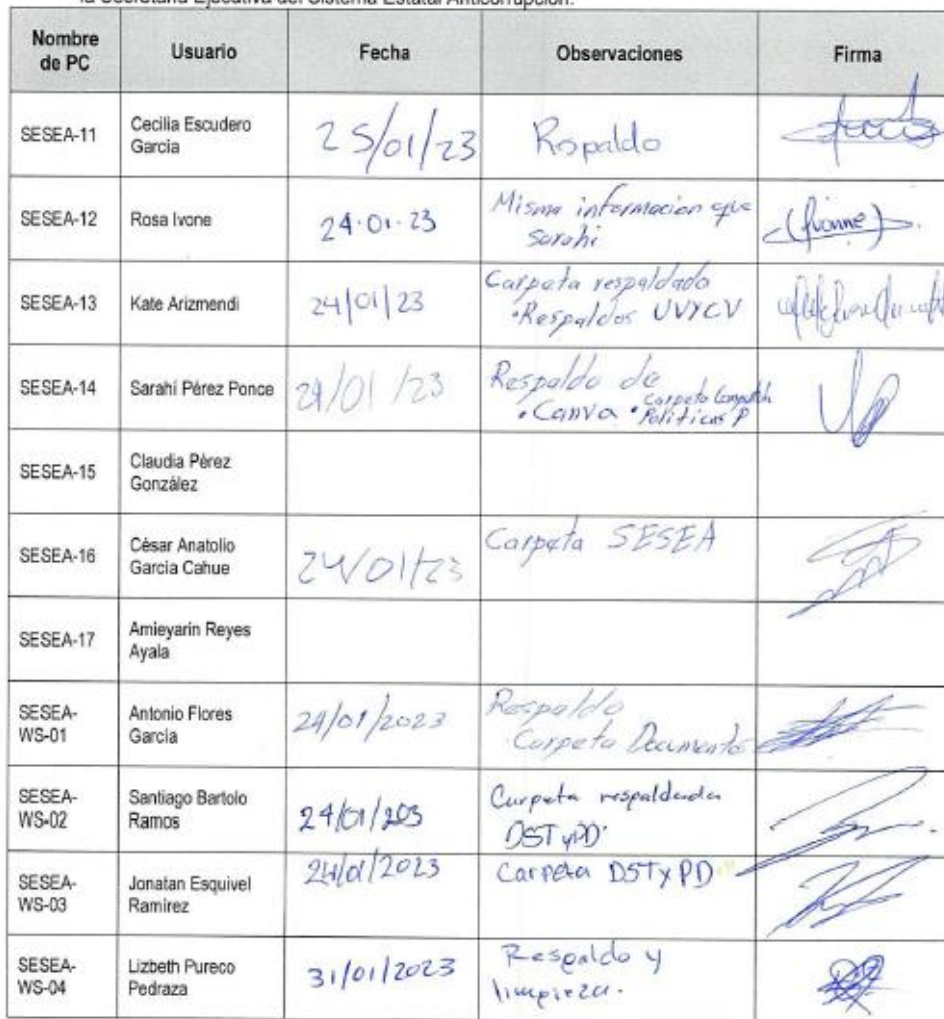 la Secretaría Ejecutiva del Sistema Estatal Anticorrupción.
Nombre de PC Usuario Fecha Observaciones Firma
SESEA-11 Cecilia Escudero García 25/01/23 Rspaldo
SESEA-12 Rosa Ivone 24.01.23 Misma informacion que Sarahi (Ivonne)
SESEA-13 Kate Arizmendi 24/01/23 Carpeta respaldado
•Respaldos UVYCV
SESEA-14 Sarahí Pérez Ponce 24/01/23 Respaldo de
•Canva •Carpeta Politicas P
SESEA-15 Claudia Pérez González
SESEA-16 César Anatolio García Cahue 24/01/23 Carpeta SESEA
SESEA-17 Amieyarin Reyes Ayala
SESEA-WS-01 Antonio Flores García 24/01/2023 Respaldo
Carpeta Documentos
SESEA-WS-02 Santiago Bartolo Ramos 24/01/203 Carpeta respaldada
DSTyPD
SESEA-WS-03 Jonatan Esquivel Ramírez 24/01/2023 Carpeta DSTyPD
SESEA-WS-04 Lizbeth Pureco Pedraza 31/01/2023 Respaldo y
limpieza.